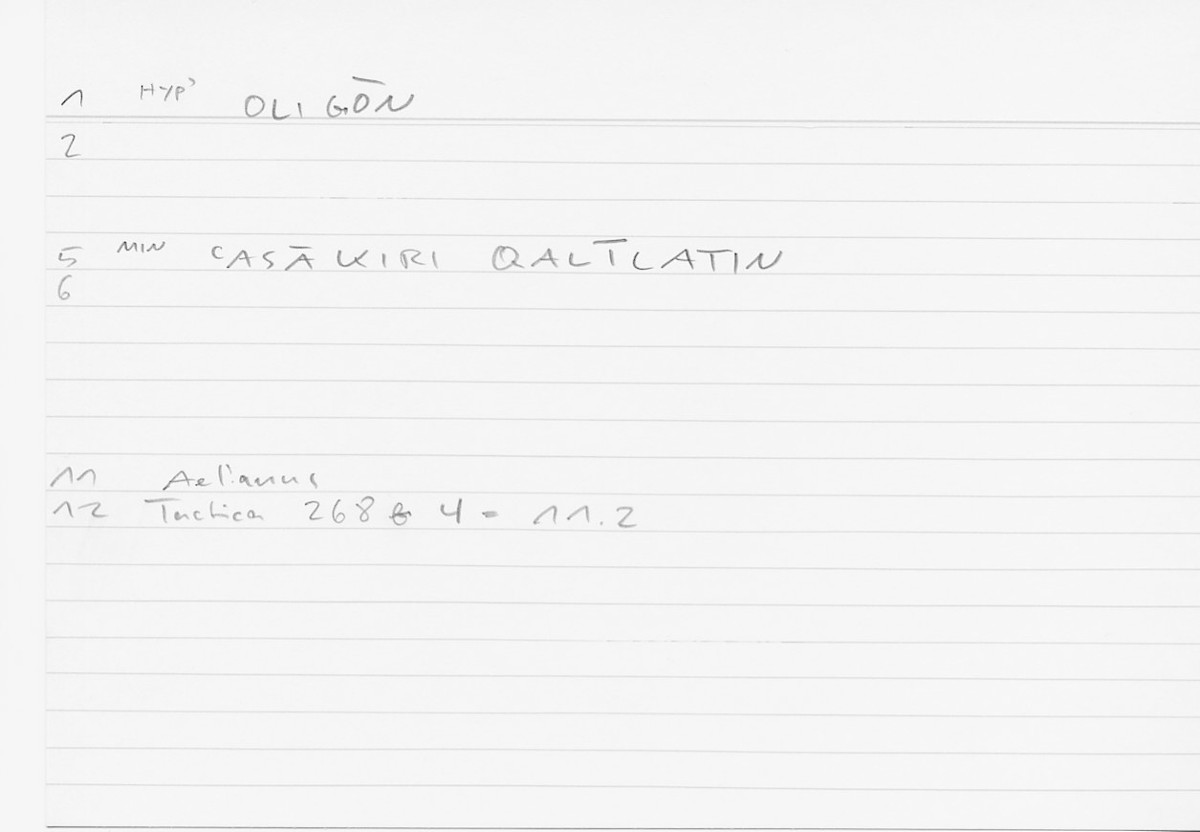 1 HYP' OLIGŌN
2
5 MIN CASĀKIRI QALT̄LATIN
6
11 Aelianus
12 Tactica 268 4 = 11.2